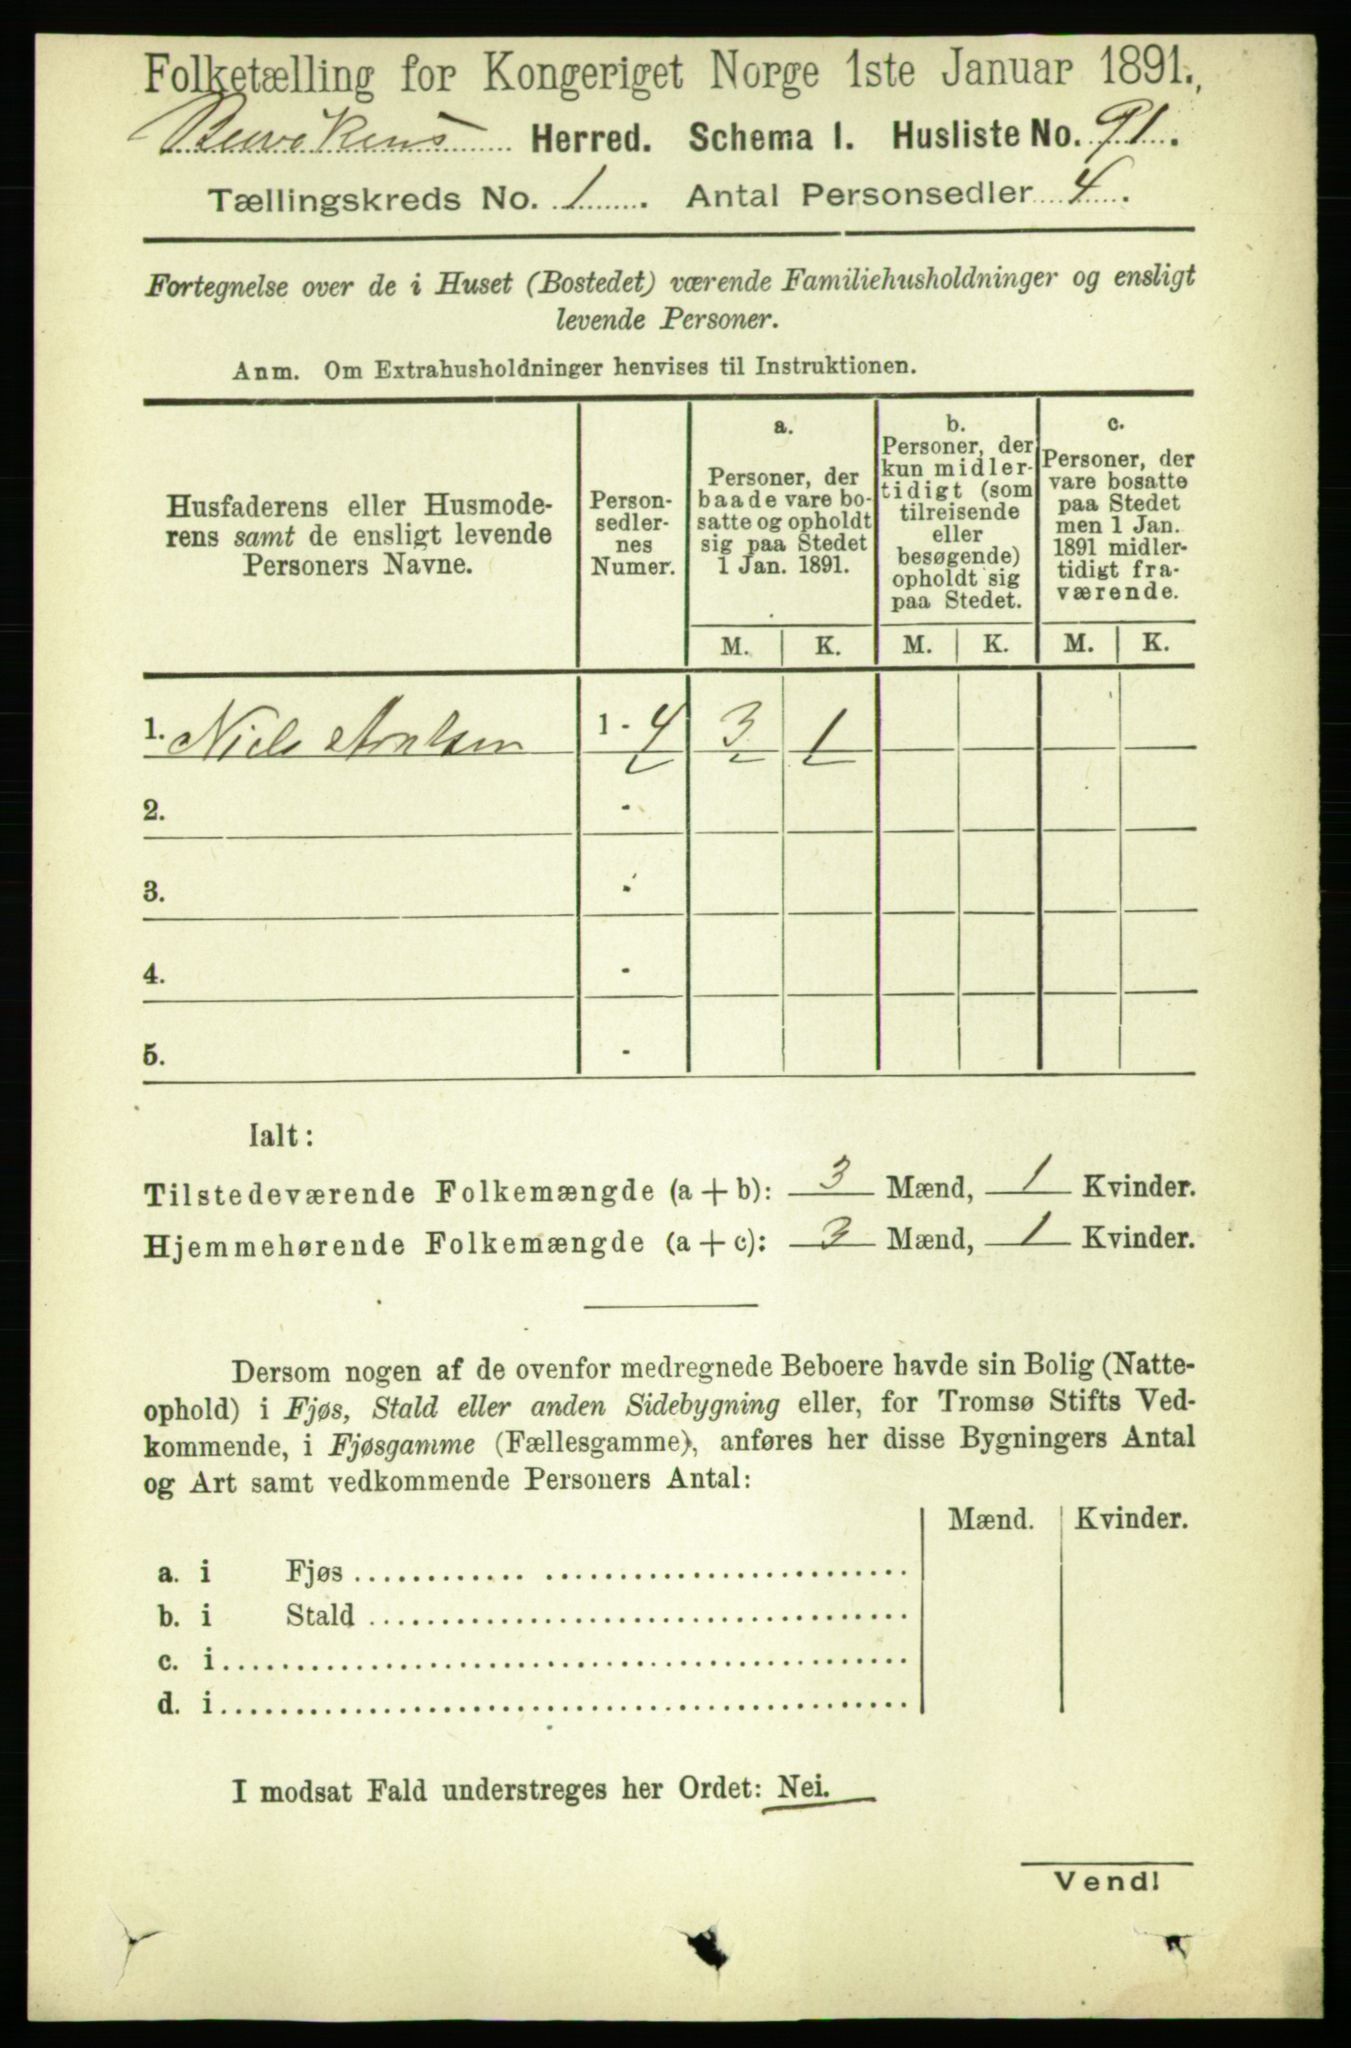 Folketælling for Kongeriget Norge 1ste Januar 1891.
Herred. Schema 1. Husliste No. 91.
Tællingskreds No. 1. Antal Personsedler 4.
Fortegnelse over de i Huset (Bostedet) værende Familiehusholdninger og ensligt
levende Personer.
Anm. Om Extrahusholdninger henvises til Instruktionen.
Husfaderens eller Husmode-
rens samt de ensligt levende
Personers Navne.
Person-
sedler-
nes
Numer.
a.
Personer, der
baade vare bo-
satte og opholdt
sig paa Stedet
1 Jan. 1891.
b.
Personer, der
kun midler-
tidigt (som
tilreisende
eller
besøgende)
opholdt sig
paa Stedet.
c.
Personer, der
vare bosatte
paa Stedet
men 1 Jan.
1891 midler-
tidigt fra-
værende.
M. K. M. K. M. K.
1. Niels 1 - 4 3 1
2. -
3. -
4. -
5. -
Ialt:
Tilstedeværende Folkemængde (a + b): 3 Mænd, 1 Kvinder.
Hjemmehørende Folkemængde (a + c): 3 Mænd, 1 Kvinder.
Dersom nogen af de ovenfor medregnede Beboere havde sin Bolig (Natte-
ophold) i Fjøs, Stald eller anden Sidebygning eller, for Tromsø Stifts Ved-
kommende, i Fjøsgamme (Fællesgamme), anføres her disse Bygningers Antal
og Art samt vedkommende Personers Antal:
Mænd. Kvinder.
a. i Fjøs
b. i Stald
c. i
d. i
I modsat Fald understreges her Ordet: Nei.
Vend!